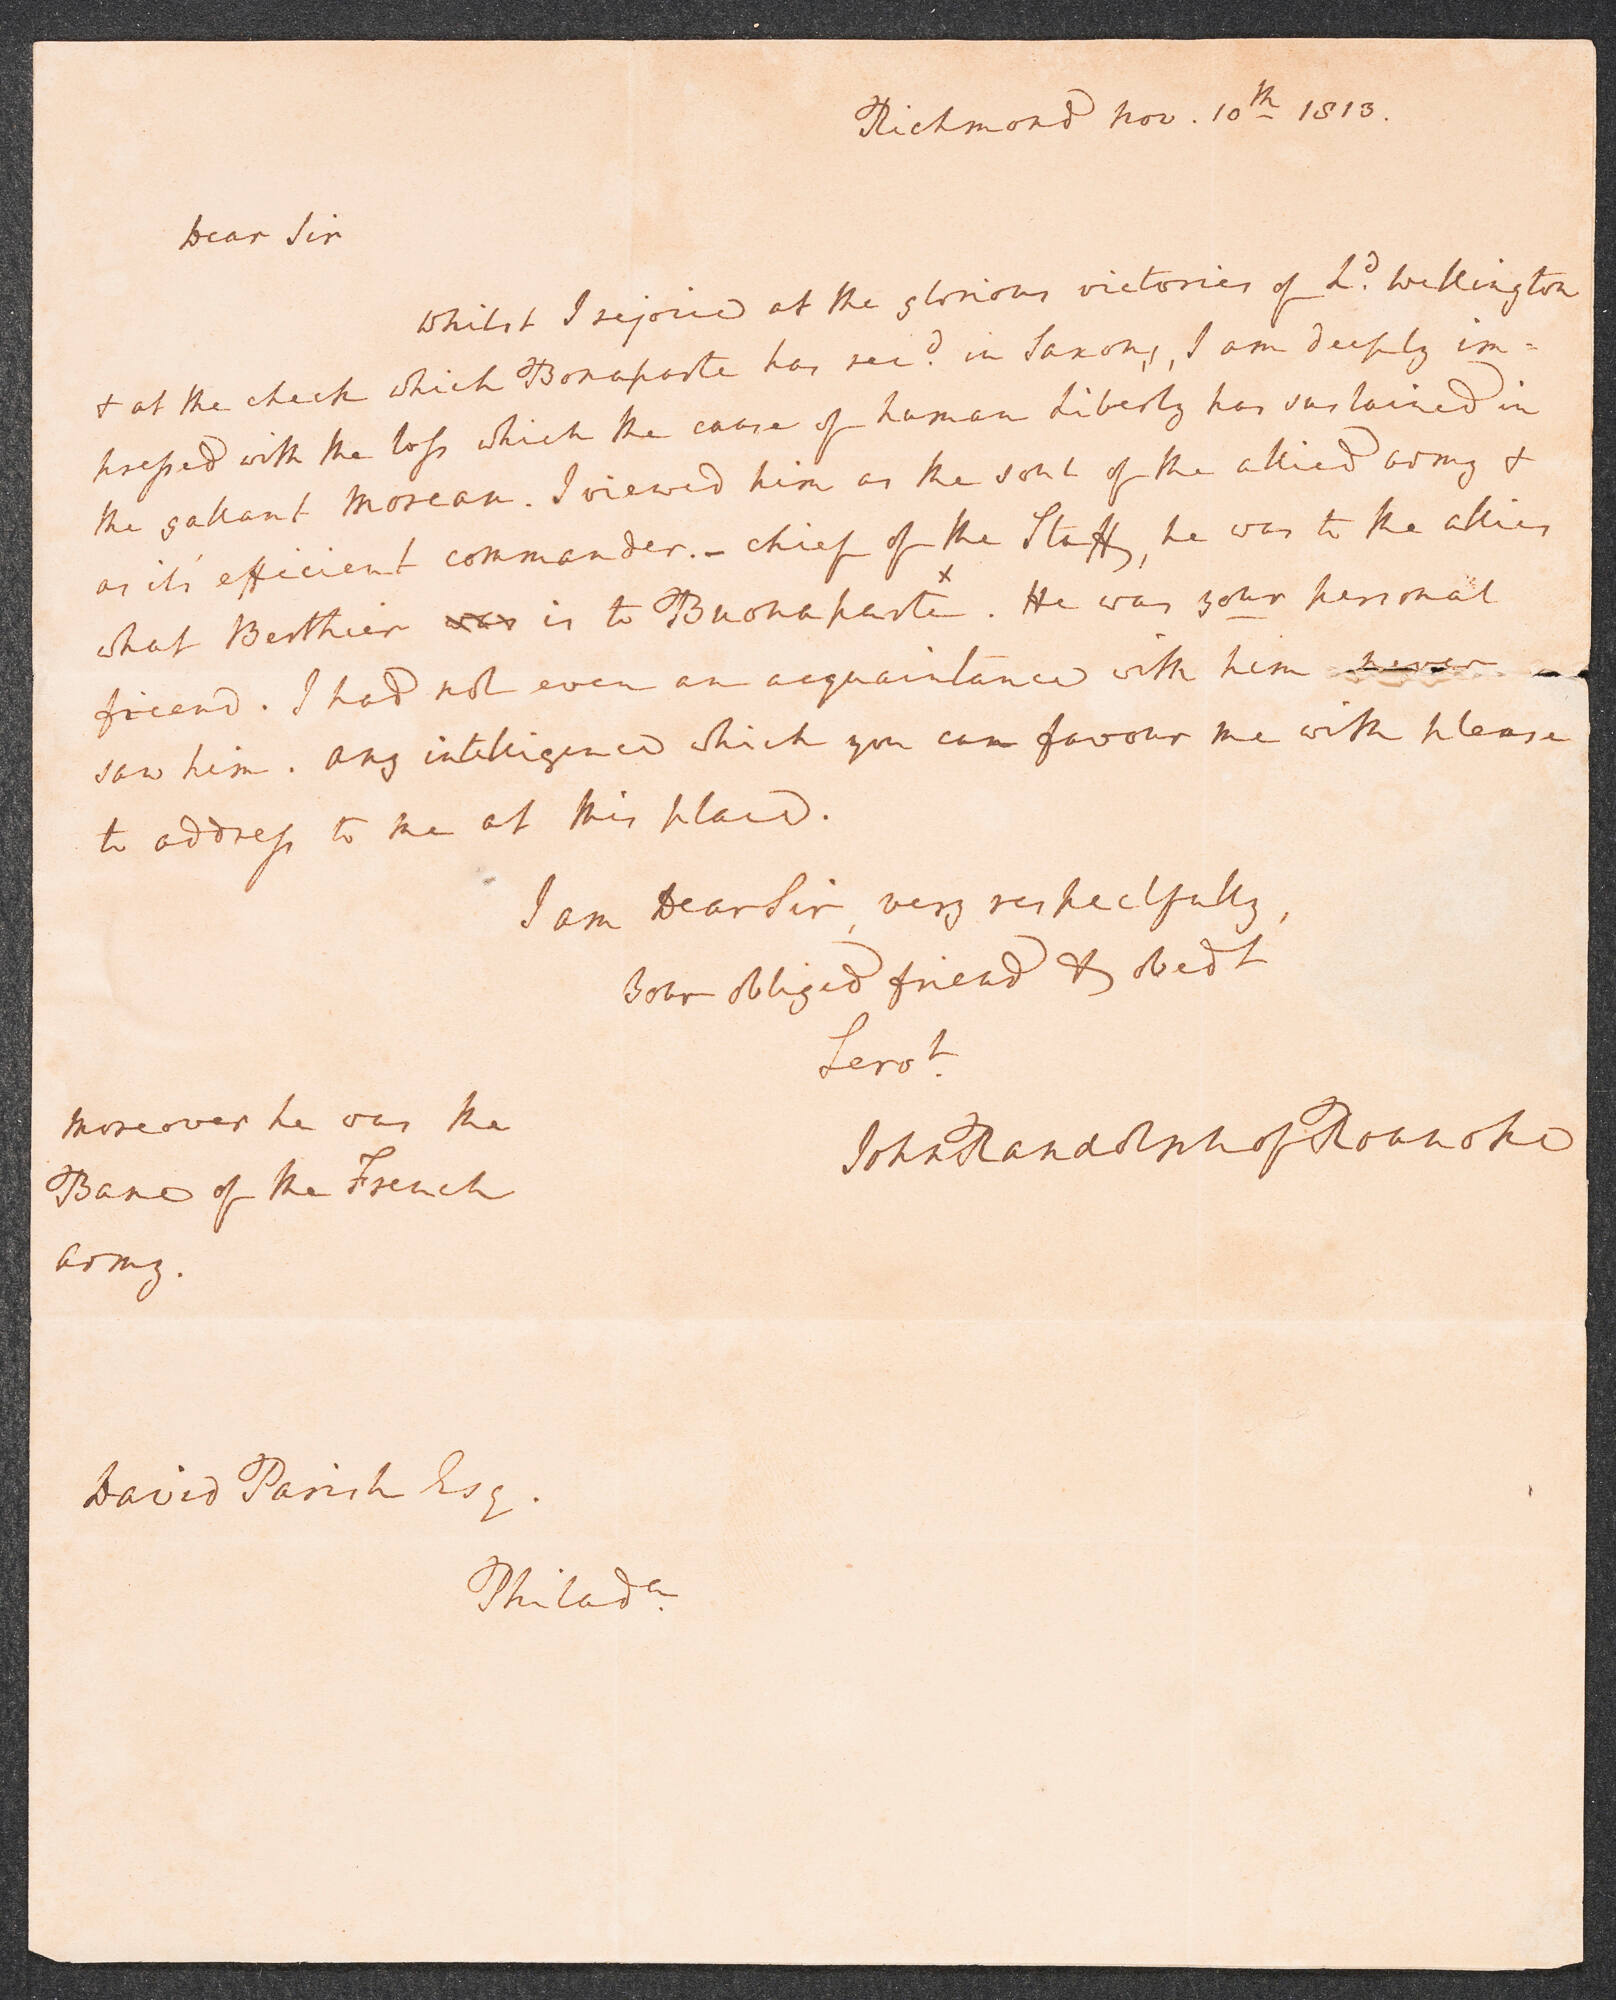 Richmond Nov. 10th 1813.
Dear Sir
Whilst I rejoice at the glorious victories of Ld. Wellington
& at the check which Bonaparte has recd. in Saxony, I am deeply im=
pressed with the loss which the cause of human Liberty has sustained in
the gallant Moreau. I viewed him as the soul of the allied army &
as it's efficient commander. – Chief of the Staff, he was to the allies
what Berthier was is to Buonaparte x. He was your personal
friend. I had not even an acquaintance with him never
saw him. Any intelligence which you can favour me with please
to address to me at this place.
I am Dear Sir, very respectfully,
Your obliged friend & obedt
Servt.
John Randolph of Roanoke
Moreover he was the
Bane of the French
army.
David Parish Esq.
Philada.